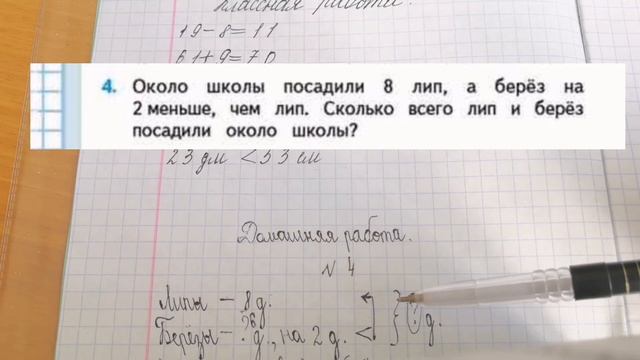 классная работа.
19-8=11
61+9=70
4. Около школы посадили 8 лип, а берёз на
2 меньше, чем лип. Сколько всего лип и берёз
посадили около школы?
23 дм < 53 см
Домашняя работа.
N 4
Липы - 8 д.
Берёзы - ? д., на 2 д. < ? д.